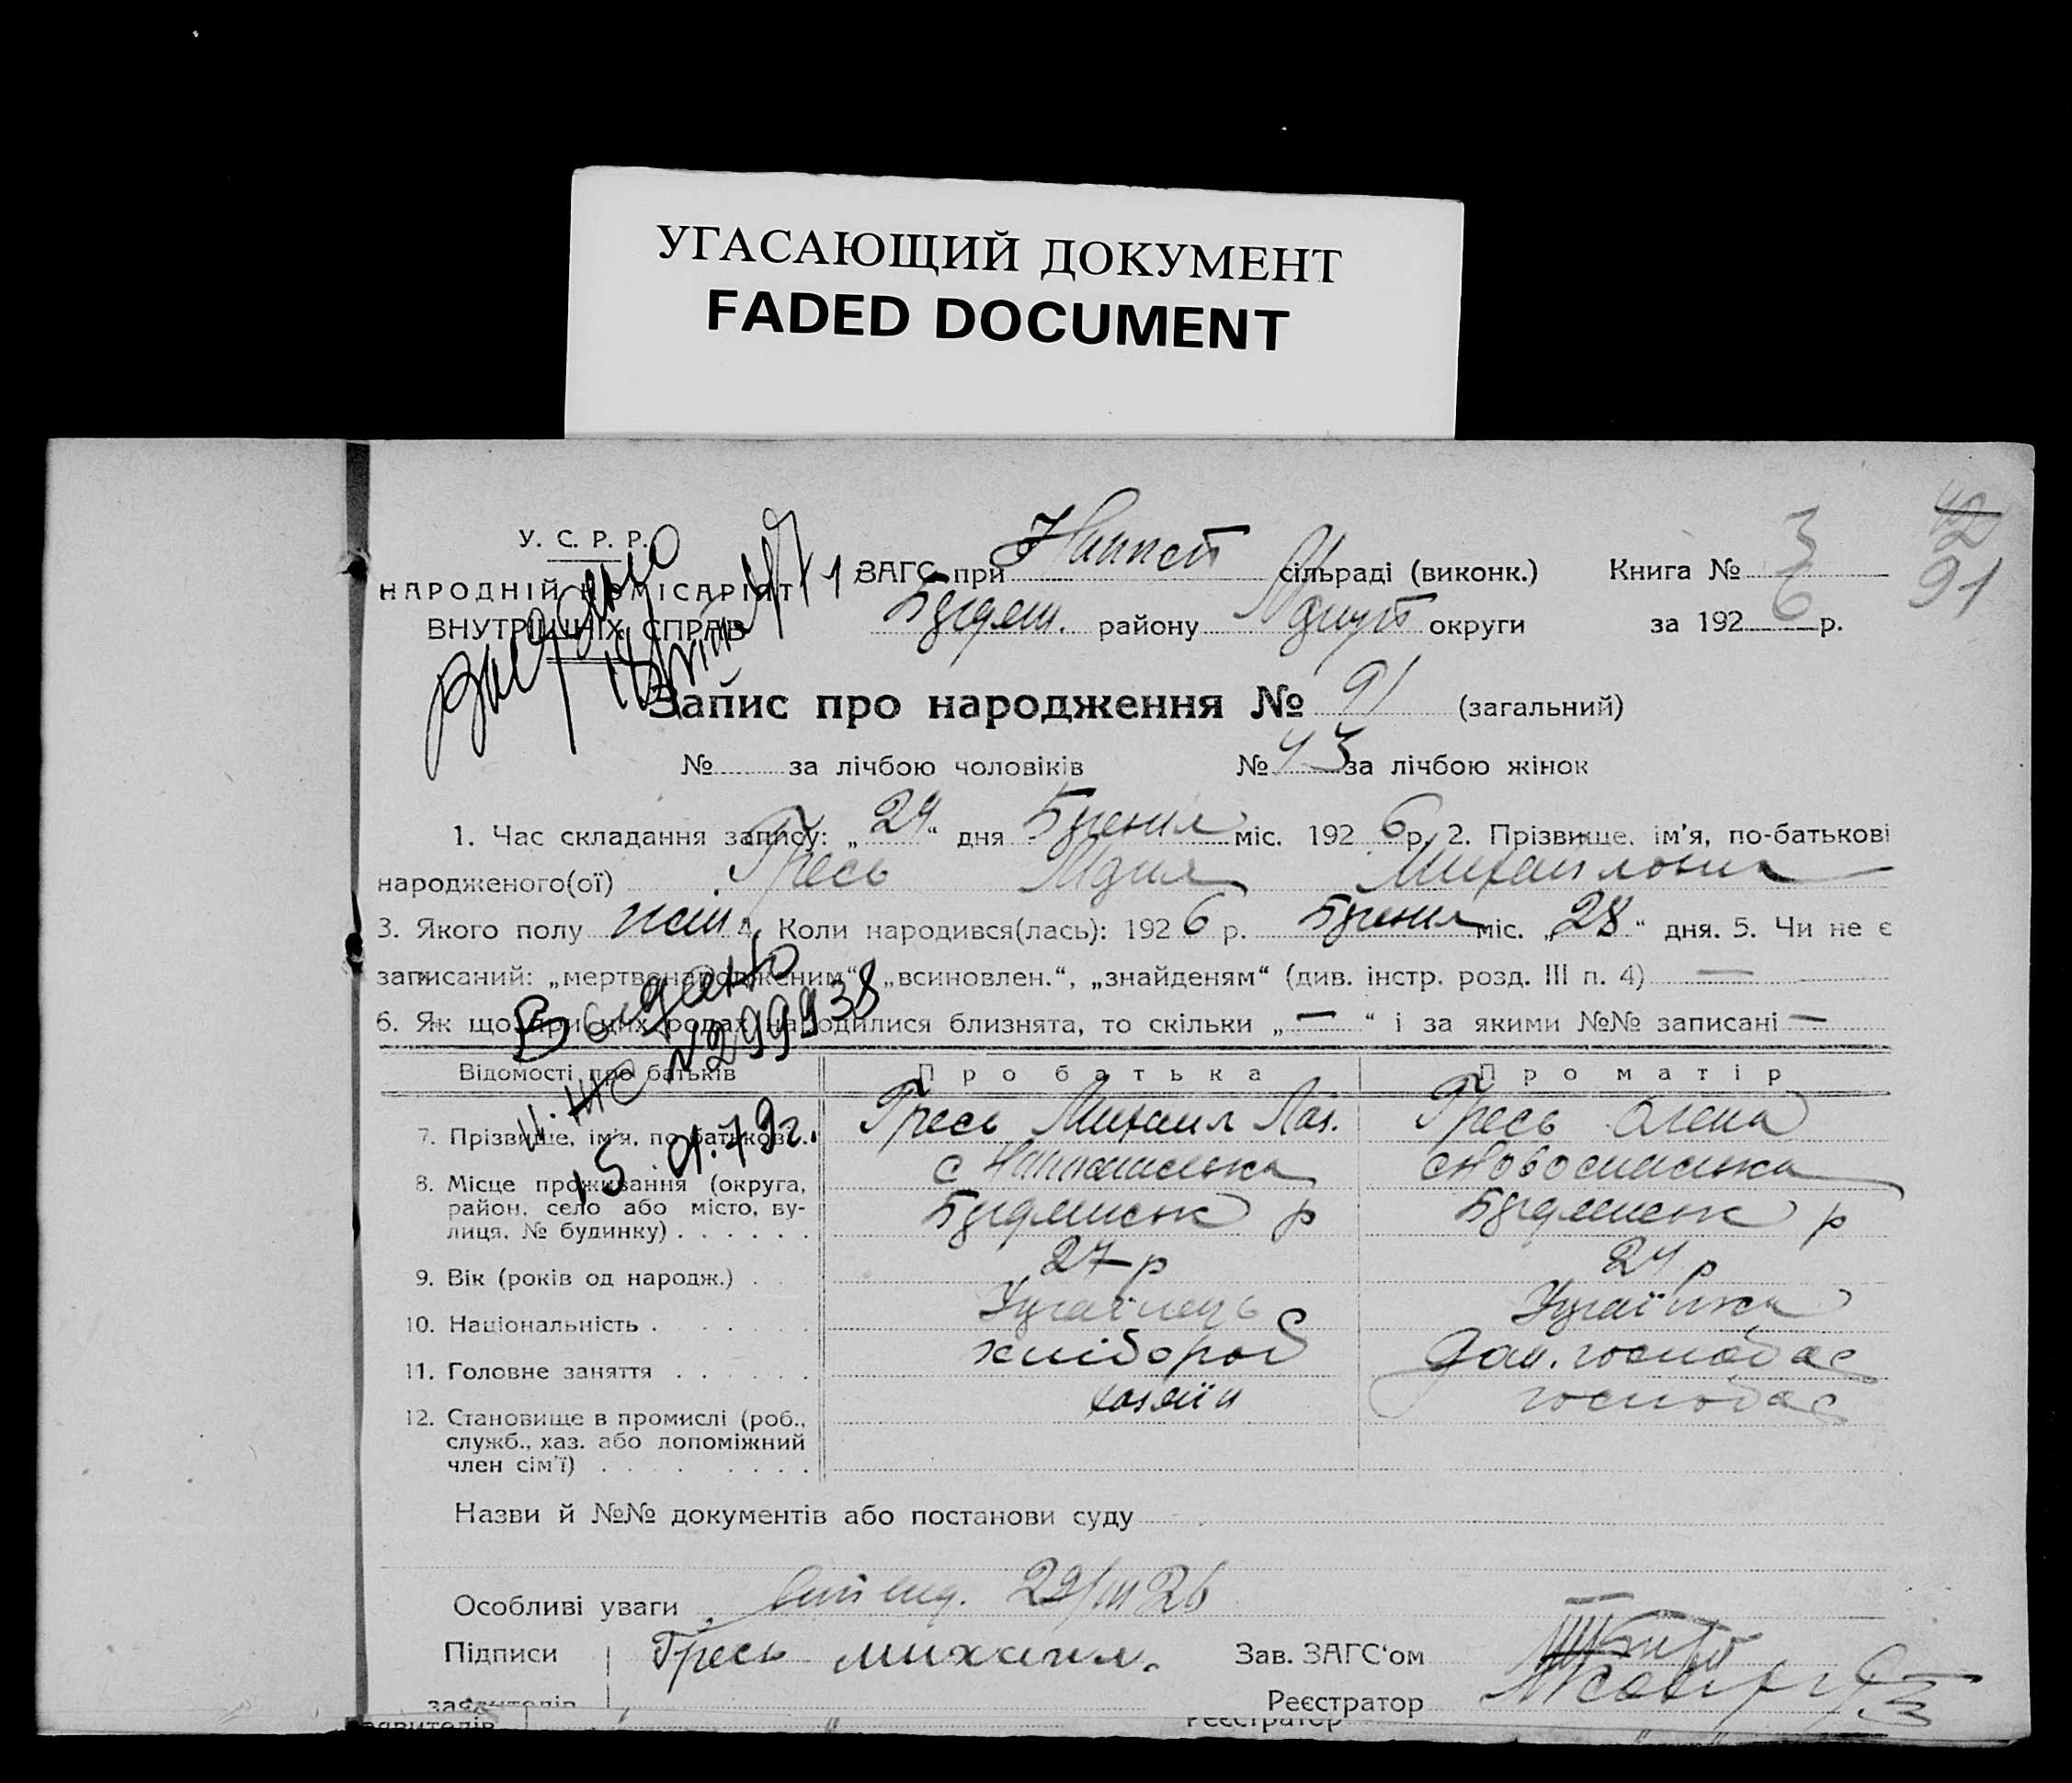 УГАСАЮЩИЙ ДОКУМЕНТ
FADED DOCUMENT
У. С. Р. Р.
НАРОДНІЙ КОМІСАРІЯТ
ВНУТРІШНІХ СПРАВ
ЗАГС при сільраді (виконк.)
району округи
Книга № 3
за 1926 р.
91
Запис про народження № 91 (загальний)
№ за лічбою чоловіків № 43 за лічбою жінок
1. Час складання запису: „29“ дня Березня міс. 1926 р. 2. Прізвище, ім'я, по-батькові
народженого(ої) Гресь Марія Михайловна
3. Якого полу жін 4. Коли народився(лась): 1926 р. Березня міс. „28“ дня. 5. Чи не є
записаний: „мертвонародженим“, „всиновлен.“, „знайденям“ (див. інстр. розд. III п. 4) —
6. Як що при цих родах народилися близнята, то скільки „—“ і за якими №№ записані —
Видано
№ 299938
15.01.79г.
Відомості про батьків Про батька Про матір
7. Прізвище, ім'я, по батькові Гресь Михаил Лаз. Гресь Олена
8. Місце проживання (округа, район, село або місто, вулиця, № будинку) с с Новоспаська
р р
9. Вік (років од народж.) 27 р 24 р
10. Національність Українець Українка
11. Головне заняття хлібороб Дом. господар
12. Становище в промислі (роб., служб., хаз. або допоміжний член сім'ї) хазяїн господар
Назви й №№ документів або постанови суду
Особливі уваги 29/III 26
Підписи Гресь михаил. Зав. ЗАГС'ом
заявителів Реєстратор
заявителів Реєстратор